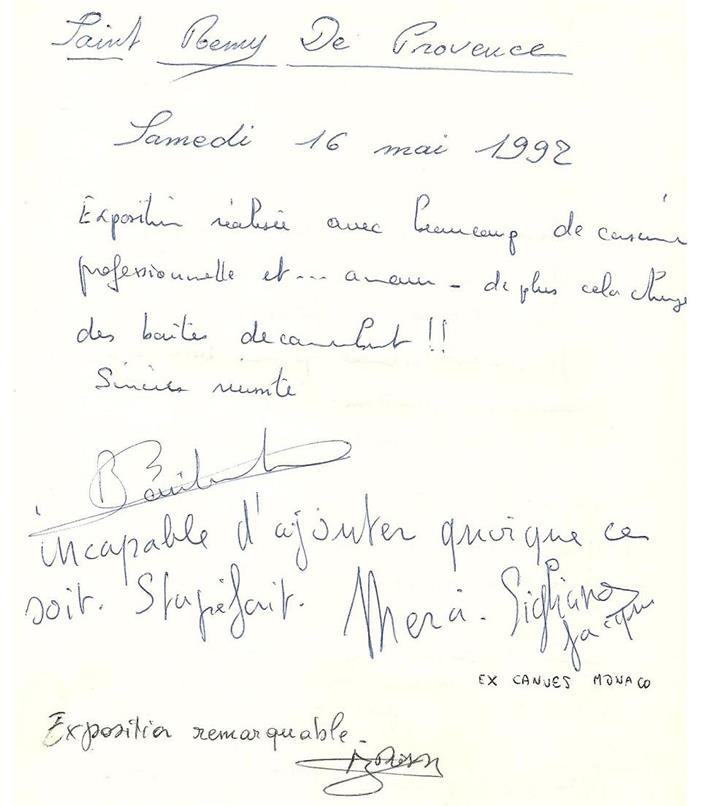 Saint Remy De Provence
Samedi 16 mai 1992
Exposition réalisée avec beaucoup de
professionnelle et... amour - de plus cela change
des boites de camembert !!
Sincère réussite
incapable d'ajouter quoique ce
soit. Stupéfait. Merci. Sigliano
Jacques
EX CANVES MONACO
Exposition remarquable.